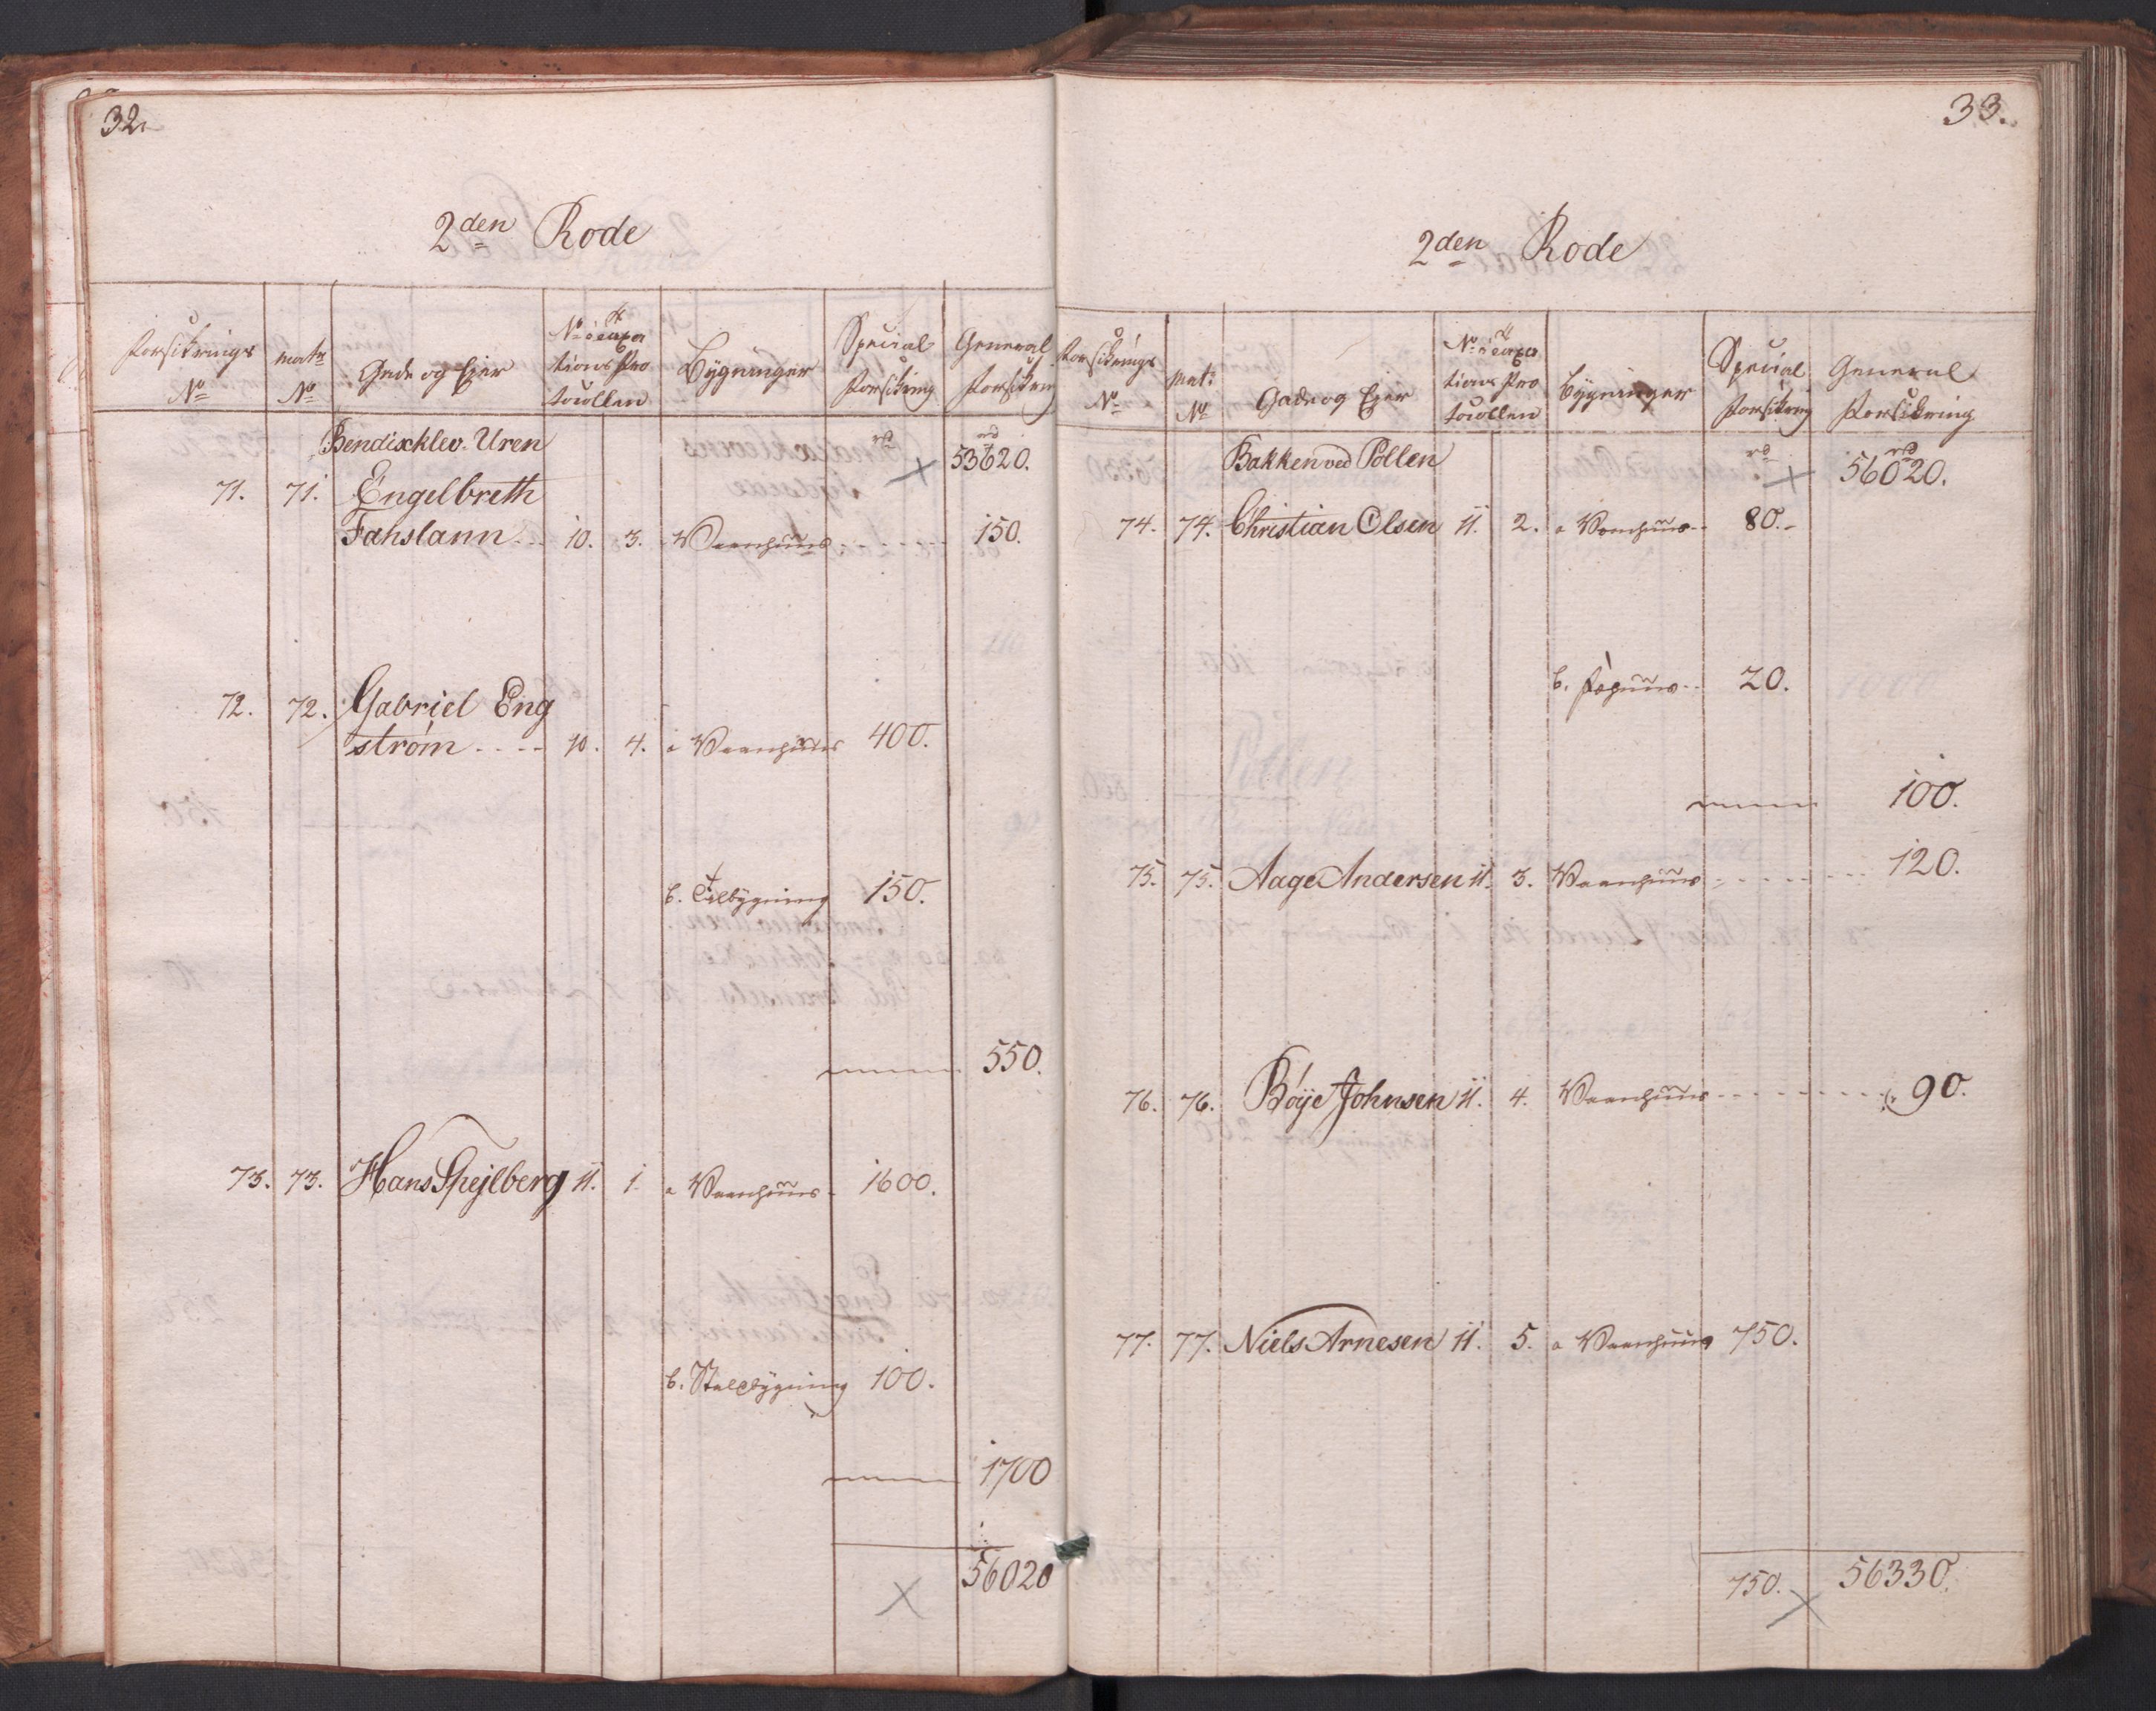 32.
2den Rode
Forsikrings No
Matr No
Gade og Ejer
No i Taxations Protocollen
Bygninger
Special Forsikring
General Forsikring
Bendixklev. Uren
rd
rd
53620.
71. 71. Engelbreth
Fahslann... 10. 3. Vaanhuus ...... 150.
72. 72. Gabriel Eng
strøm .... 10. 4. a Vaanhuus 400.
b. bygning 150.
550.
73. 73. Hans Spejlberg 11. 1. a Vaanhuus. 1600.
b. Stalbygning 100.
1700
56020
33.
2den Rode
Forsikrings No
Mat: No
Gade og Ejer
No i Taxations Protocollen
Bygninger
Special Forsikring
General Forsikring
Bakken ved Pollen
rd
rd
56020.
74. 74. Christian Olsen 11. 2. a Vaanhuus.. 80.-
b. Fæhuus.. 20.
100.
75. 75. Aage Andersen 11. 3. Vaanhuus ........ 120.
76. 76. Bøÿe Johnsen 11. 4. Vaanhuus ........ 90.
77. 77. Niels Arnesen 11. 5. a Vaanhuus 750.
750. 56330.